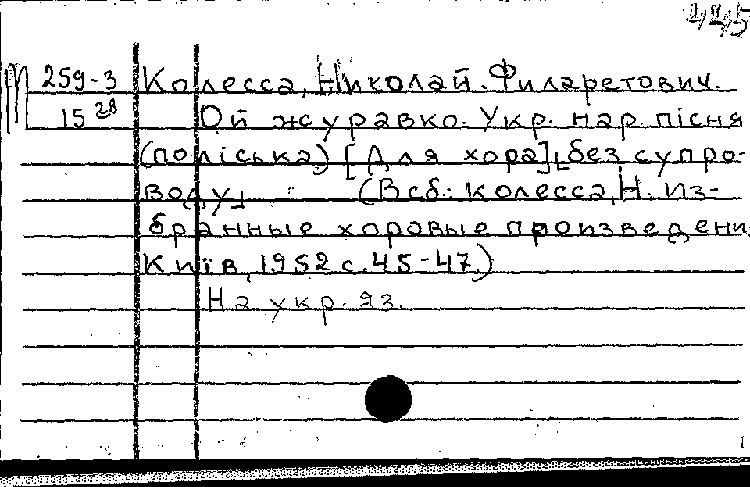 445
М 259-3 Колесса, Николай Филаретович.
15 28 Ой журавко. Укр. нар. пісня
(поліська) [Для хора], без супро-
воду. (В сб: Колесса, Н. Из-
бранные хоровые произведени
Київ, 1952 с. 45-47.)
На укр. яз.